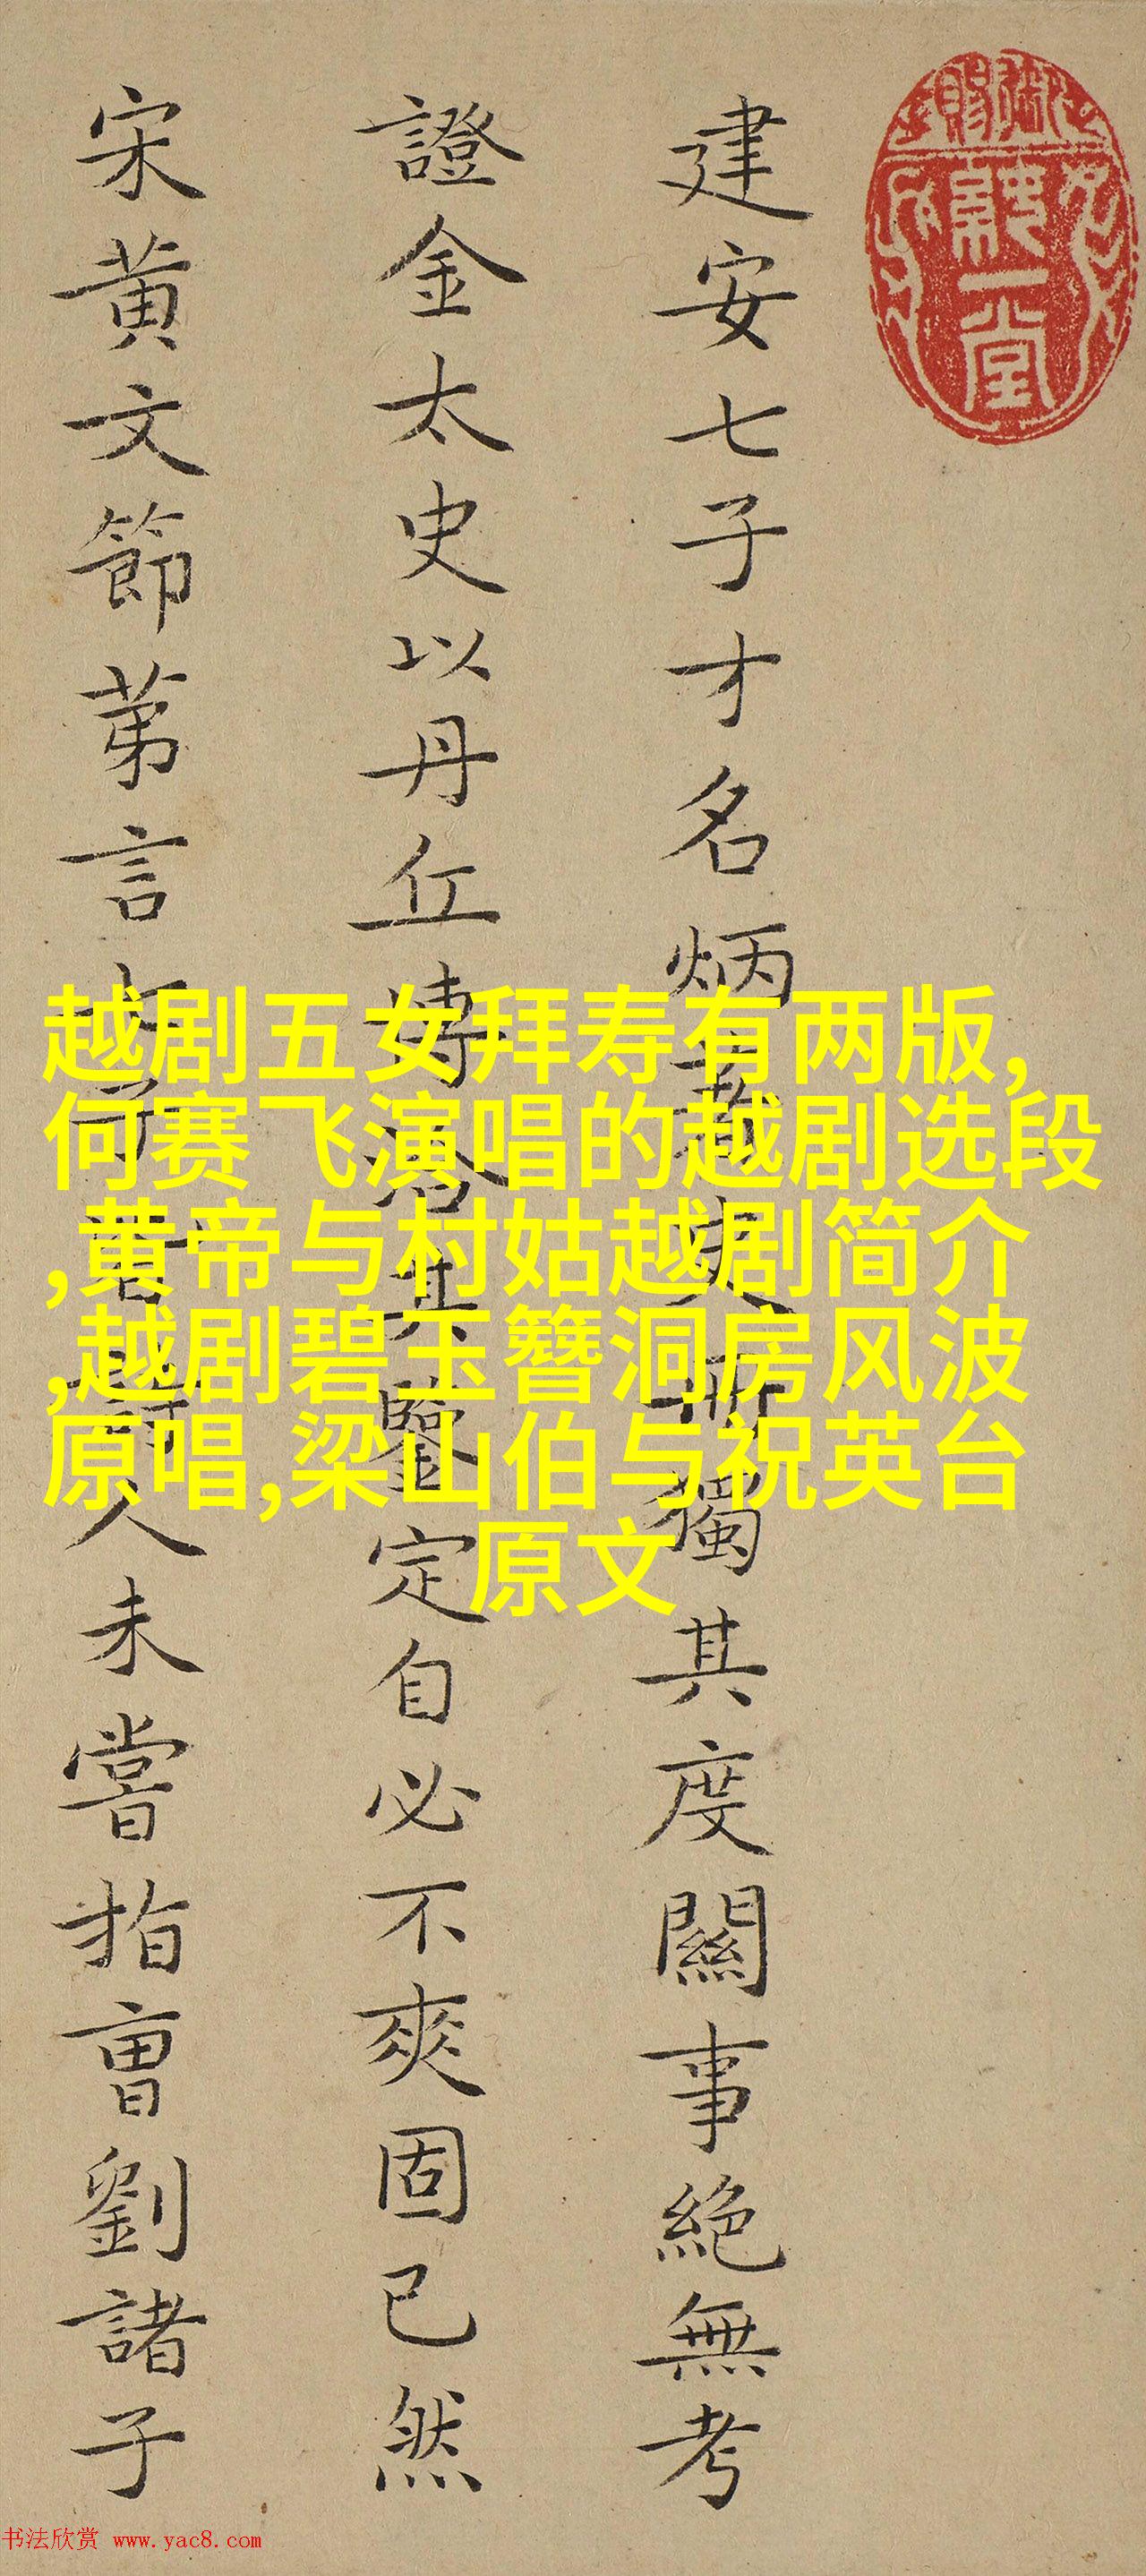 建安七子才名炳獨其度關事絕無考
證金太史以丹丘博洽其鑒定自必不爽固已然
宋黃文節苐言七子人未嘗指曹劉諸子
越剧五女拜寿有两版,
何赛飞演唱的越剧选段
,黄帝与村姑越剧简介
,越剧碧玉簪洞房风波
原唱,梁山伯与祝英台
原文
书法欣赏 www.yac8.com